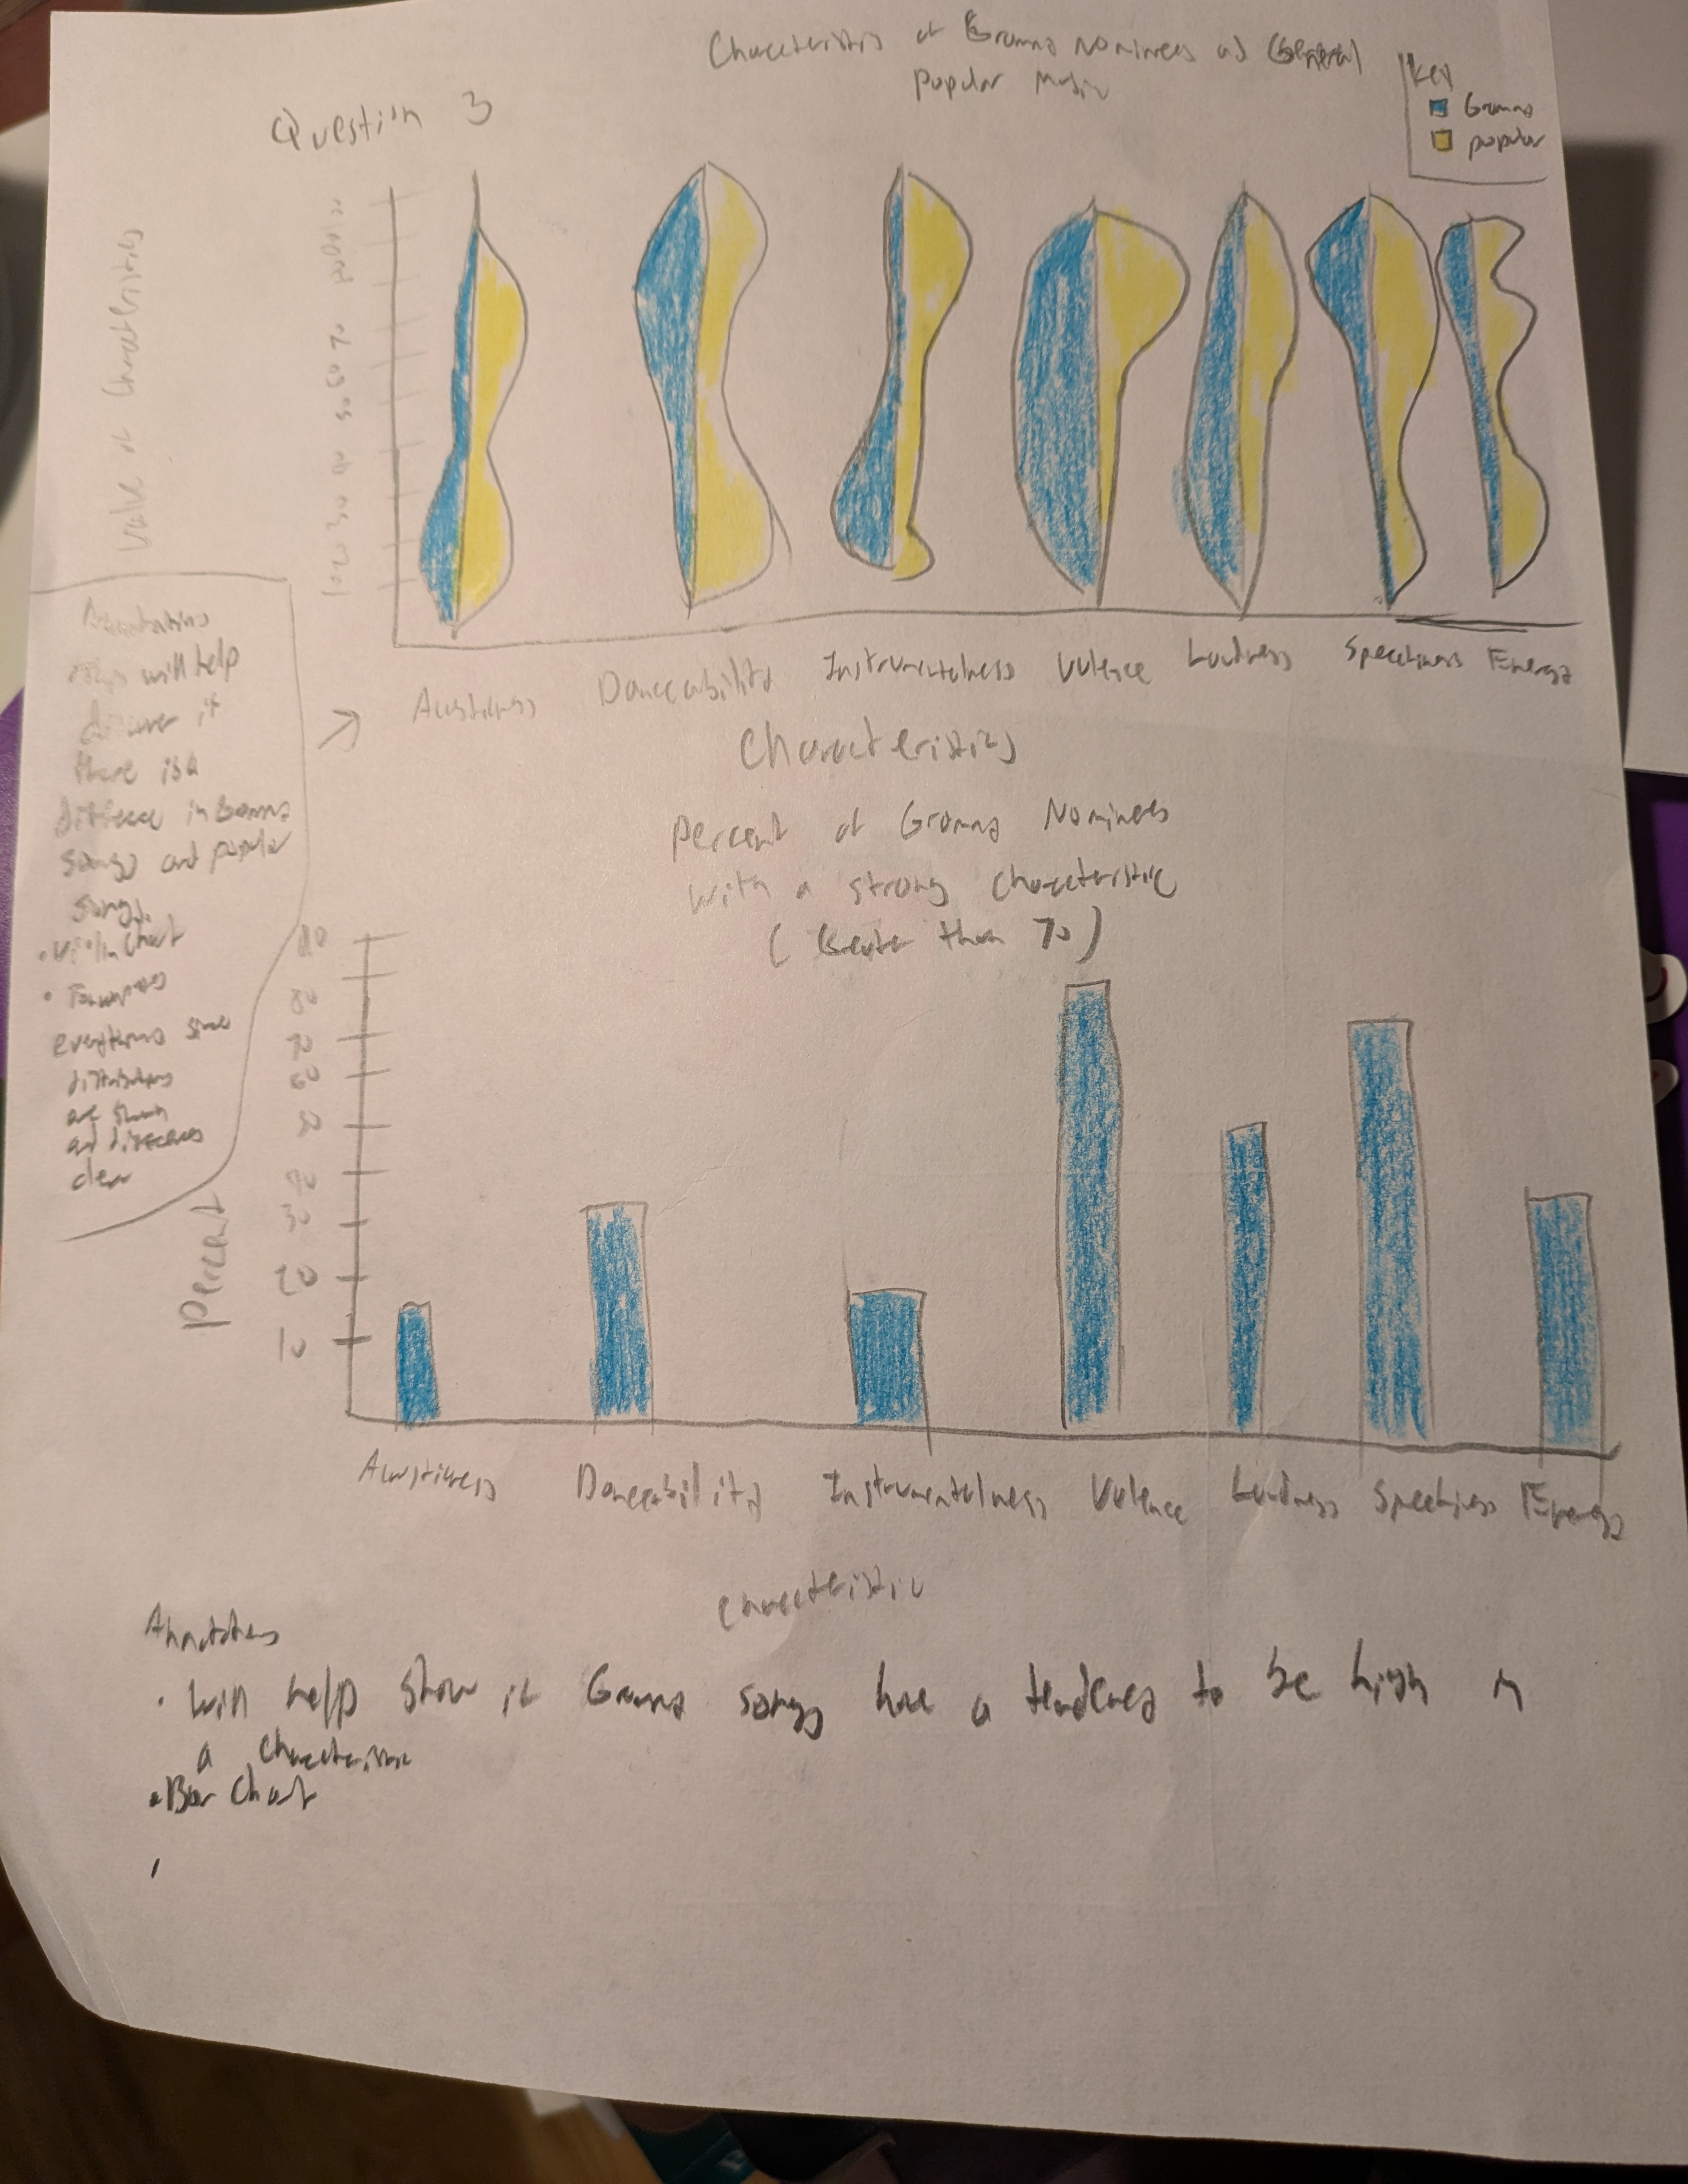 Question 3
Characteristis of Gramma Nominees and General
popular Music
Key
Gramma
popular
Value of Characteristics
10 20 30 40 50 60 70 80 90 100
Acousticness Danceability Instrumentalness Valence Loudness Speechiness Energy
Characteristics
Annotations
will help
discover if
there is a
difference in Gramma
songs and popular
songs.
• Violin Chart
•
everything since
distributions
are shown
and differences
clear
Percent of Gramma Nominees
with a strong characteristic
(Greater than 70)
Percent
90
80
70
60
50
40
30
20
10
Acousticness Danceability Instrumentalness Valence Loudness Speechiness Energy
characteristic
Annotations
• Will help show if Gramma songs have a tendency to be high in
a characteristic
• Bar Chart